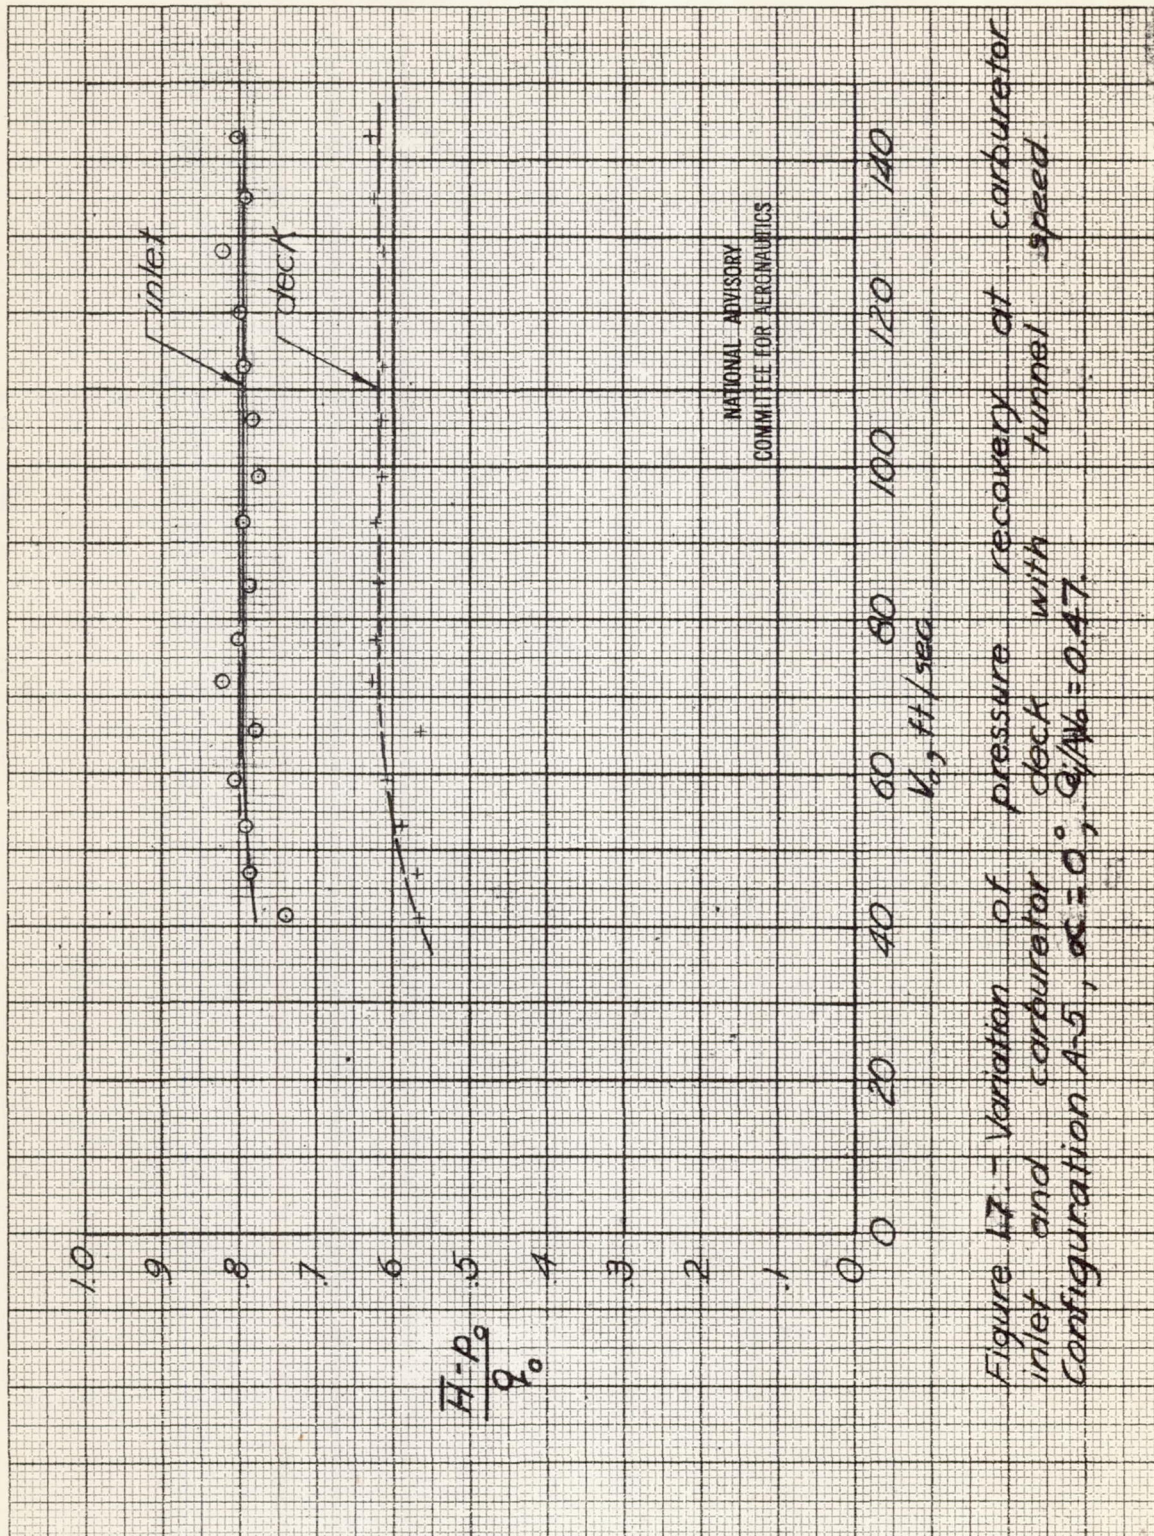 1.0
.9
.8
.7
.6
.5
.4
.3
.2
.1
0
H-p₀
q₀
inlet
deck
NATIONAL ADVISORY
COMMITTEE FOR AERONAUTICS
0 20 40 60 80 100 120 140
V₀, ft/sec
Figure 17.- Variation of pressure recovery at carburetor
inlet and carburetor deck with tunnel speed.
Configuration A-5, α = 0°, Qi/AV₀ = 0.47.